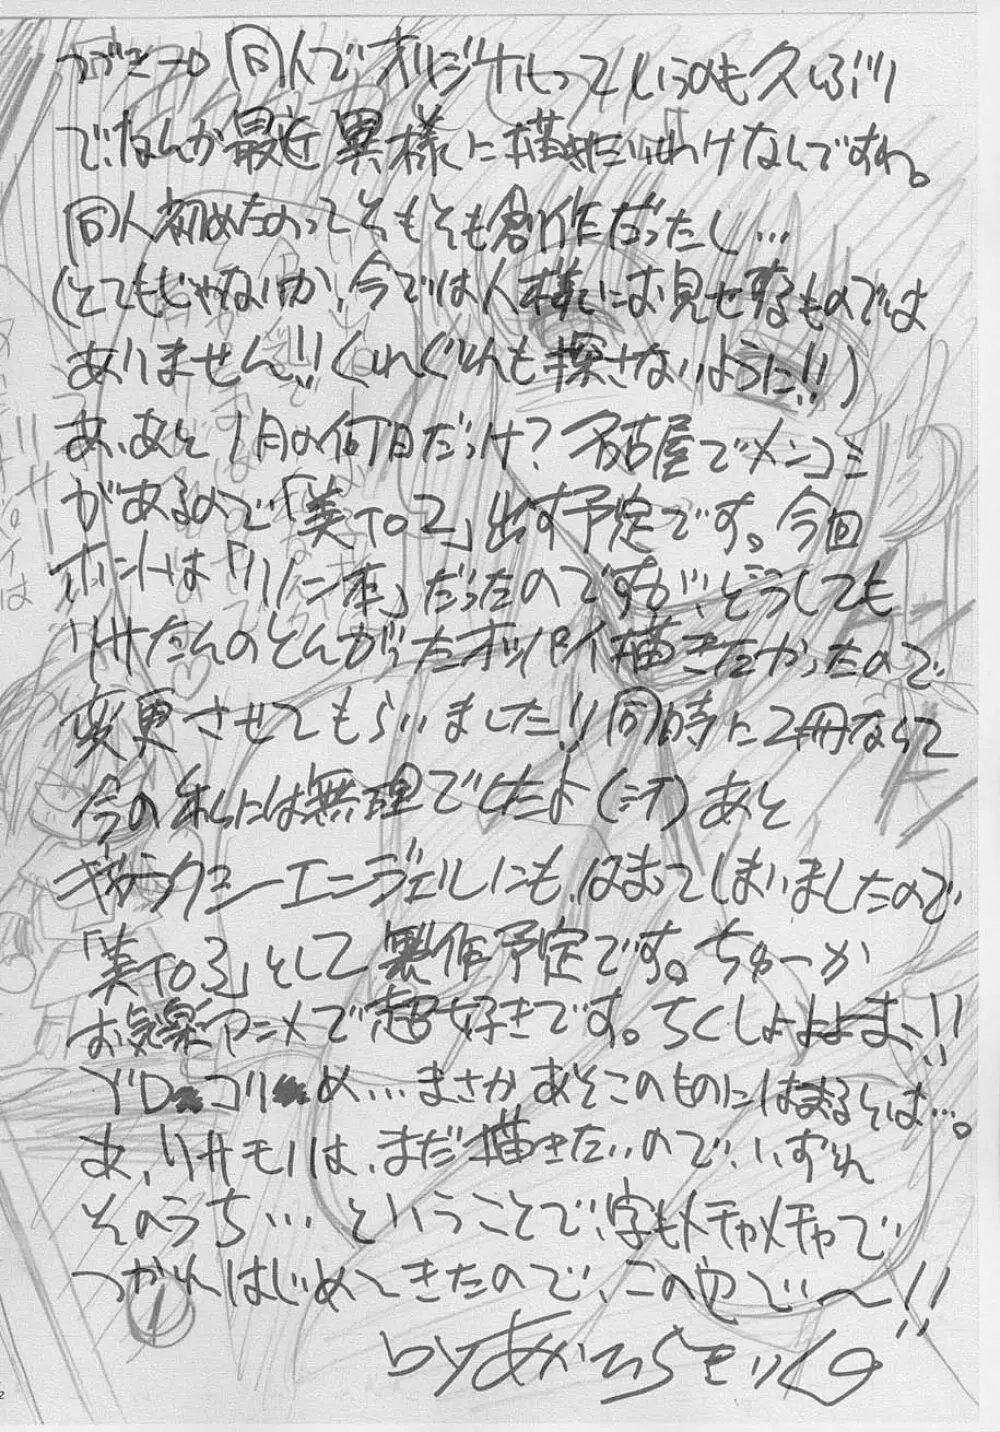 つづきーの 同人でオリジナルっていうのも久しぶり
で、なんか最近異様に描きたいわけなんですわ。
同人初めたのってそもそも創作だったし…
(とてもじゃないが、今では人様にお見せするものでは
ありません!!くれぐれも探さないように!!)
あ、あと1月の何日だっけ?名古屋でメンコミ
があるので「美TO2」出す予定です。今回
ホントは「リノン本」だったのですが、どうしても
リサたんのとんがったオッパイ描きたかったので
変更させてもらいました!!同時に2冊なんて
今の私には無理でしたよ(汗)あと
ギャラクシーエンジェルにも、はまってしまいましたので
「美TO3」として製作予定です。ちゅーか
お気楽アニメで超好きです。ちくしょ
ブロ コリ め…まさかあそこのものにはまるとは…。
あ、リサモノは、まだ描きたいので、いずれ
そのうち…ということで、字もメチャメチャで
つかれはじめてきたので、このへんで〜!!
by